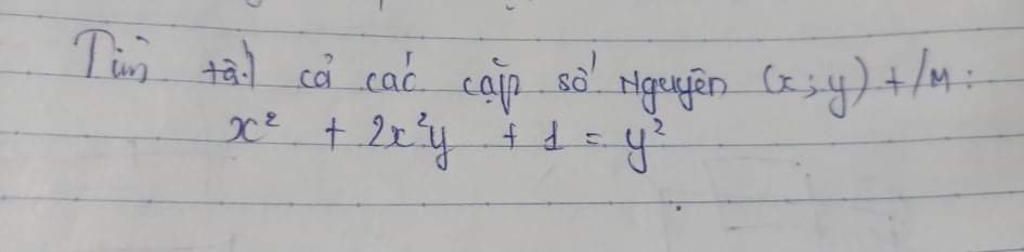 Tìm tất cả các cặp số nguyên (x; y) t/m:
x² + 2x²y + 1 = y²